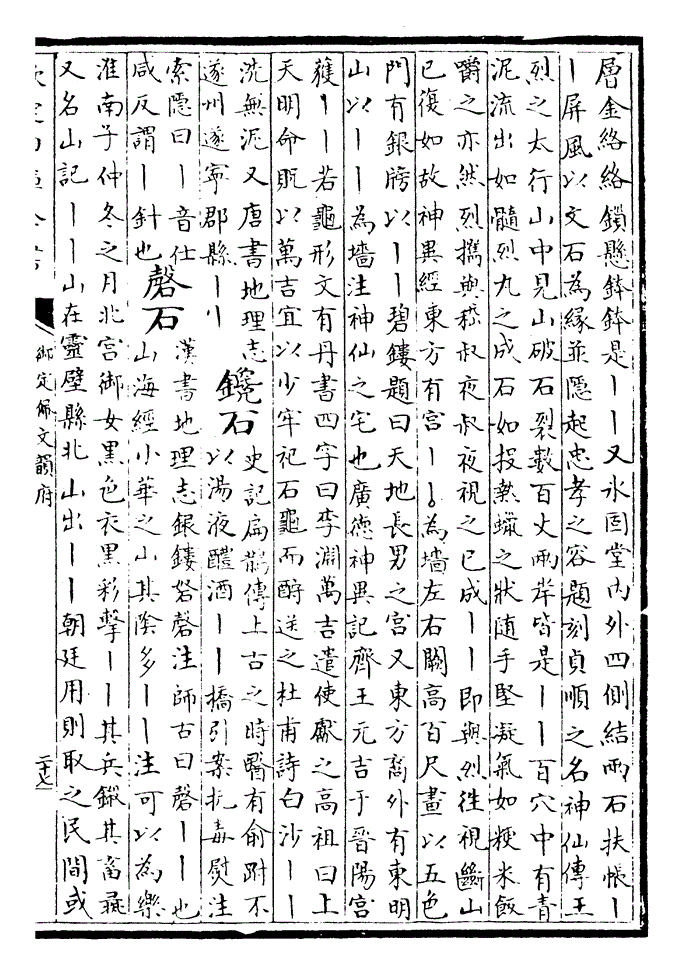 層金絡絡鎖懸鉢鉢是丨丨又永固堂内外四側結兩石扶帳丨
丨屏風以文石為緣並隱起忠孝之容題刻貞順之名神仙傳王
烈之太行山中見山破石裂數百丈兩岸皆是丨丨百穴中有青
泥流出如髓烈丸之成石如投熱蠟之狀随手堅凝氣如粳米飯
嚼之亦然烈攜與嵇叔夜叔夜視之已成丨丨即與烈徃視斷山
已復如故神異經東方有宫丨丨為墻左右闕高百尺畫以五色
門有銀牓以丨丨碧鏤題曰天地長男之宫又東方裔外有東明
山以丨丨為墻注神仙之宅也廣德神異記齊王元吉于晉陽宫
獲丨丨若龜形文有丹書四字曰李淵萬吉遣使獻之高祖曰上
天明命貺以萬吉宜以少牢祀石龜而酹送之杜甫詩白沙丨丨
洗無泥又唐書地理志
遂州遂寧郡縣丨丨
鑱石
史記扁鵲傳上古之時醫有俞跗不
以湯液醴酒丨丨橋引案抏毒熨注
索隱曰丨音仕
咸反謂丨針也
磬石
漢書地理志銀鏤砮磬注師古曰磬丨丨也
山海經小華之山其陰多丨丨注可以為樂
淮南子仲冬之月北宫御女黑色衣黑彩擊丨丨其兵鎩其畜彘
又名山記丨丨山在靈壁縣北山出丨丨朝廷用則取之民間或
御定佩文韻府
二十七